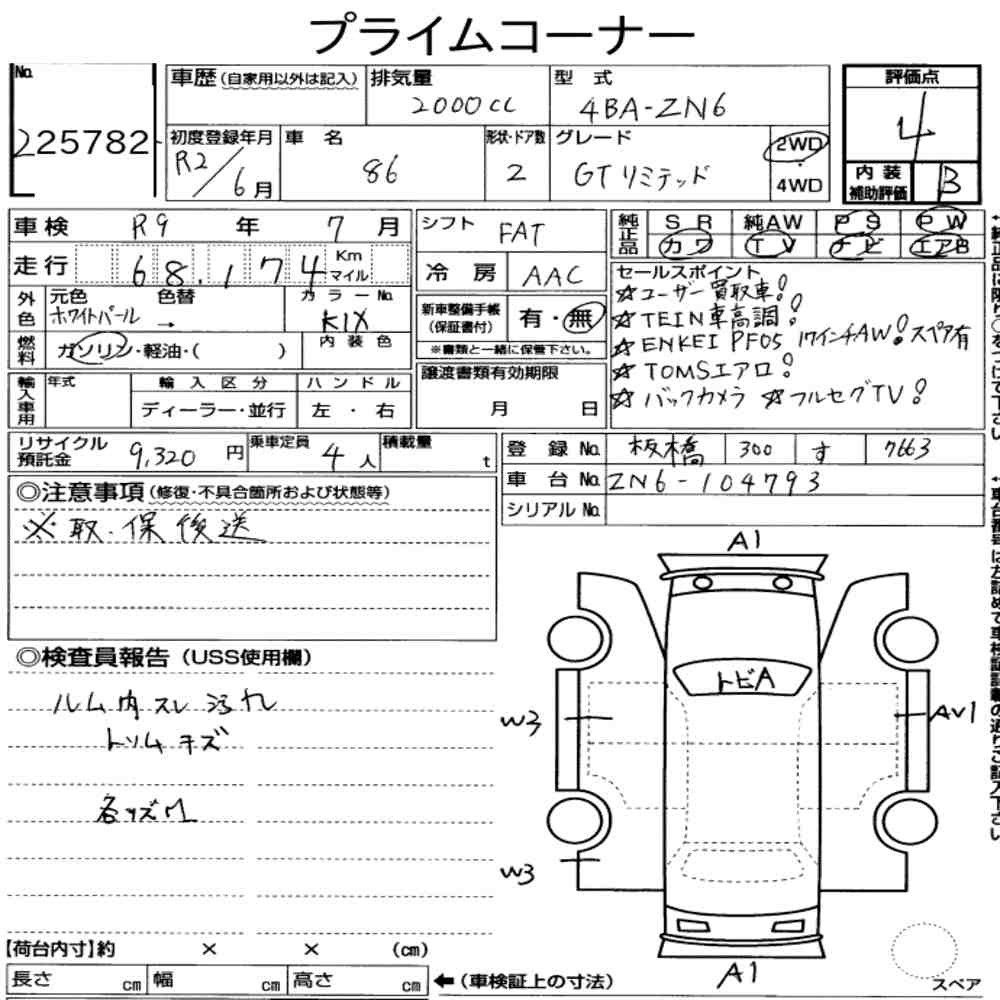 プライムコーナー
No.
225782
車歴(自家用以外は記入)
排気量
2000cc
型 式
4BA-ZN6
評価点
4
初度登録年月
R2/6月
車 名
86
形状・ドア数
2
グレード
GTリミテッド
2WD
・
4WD
内 装
補助評価
B
車検 R9 年 7 月
シフト FAT
純正品
SR 純AW PS PW
カワ TV ナビ エアB
走行 68.174 Km マイル
冷 房 AAC
外色
元色 色替
ホワイトパール →
カラーNo.
K1X
内 装 色
燃料
ガソリン・軽油・( )
新車整備手帳
(保証書付)
有・無
※書類と一緒に保管下さい。
セールスポイント
☆ユーザー買取車!
☆TEIN車高調!
☆ENKEI PF05 17インチAW!スペア有
☆TOMSエアロ!
☆バックカメラ ☆フルセグTV!
輸入車用
年式
輸 入 区 分
ディーラー・並行
ハ ン ド ル
左 ・ 右
譲渡書類有効期限
月 日
リサイクル
預託金
9,320 円
乗車定員
4人
積載量
t
登 録 No. 板橋 300 す 7663
車 台 No. ZN6-104793
シリアル No.
◎注意事項(修復・不具合箇所および状態等)
※取.保後送
◎検査員報告(USS使用欄)
ルム内スレ汚れ
トリムキズ
A1
トビA
W3
AV1
W3
A1
【荷台内寸】約 × × (cm)
長さ cm 幅 cm 高さ cm
←(車検証上の寸法)
スペア